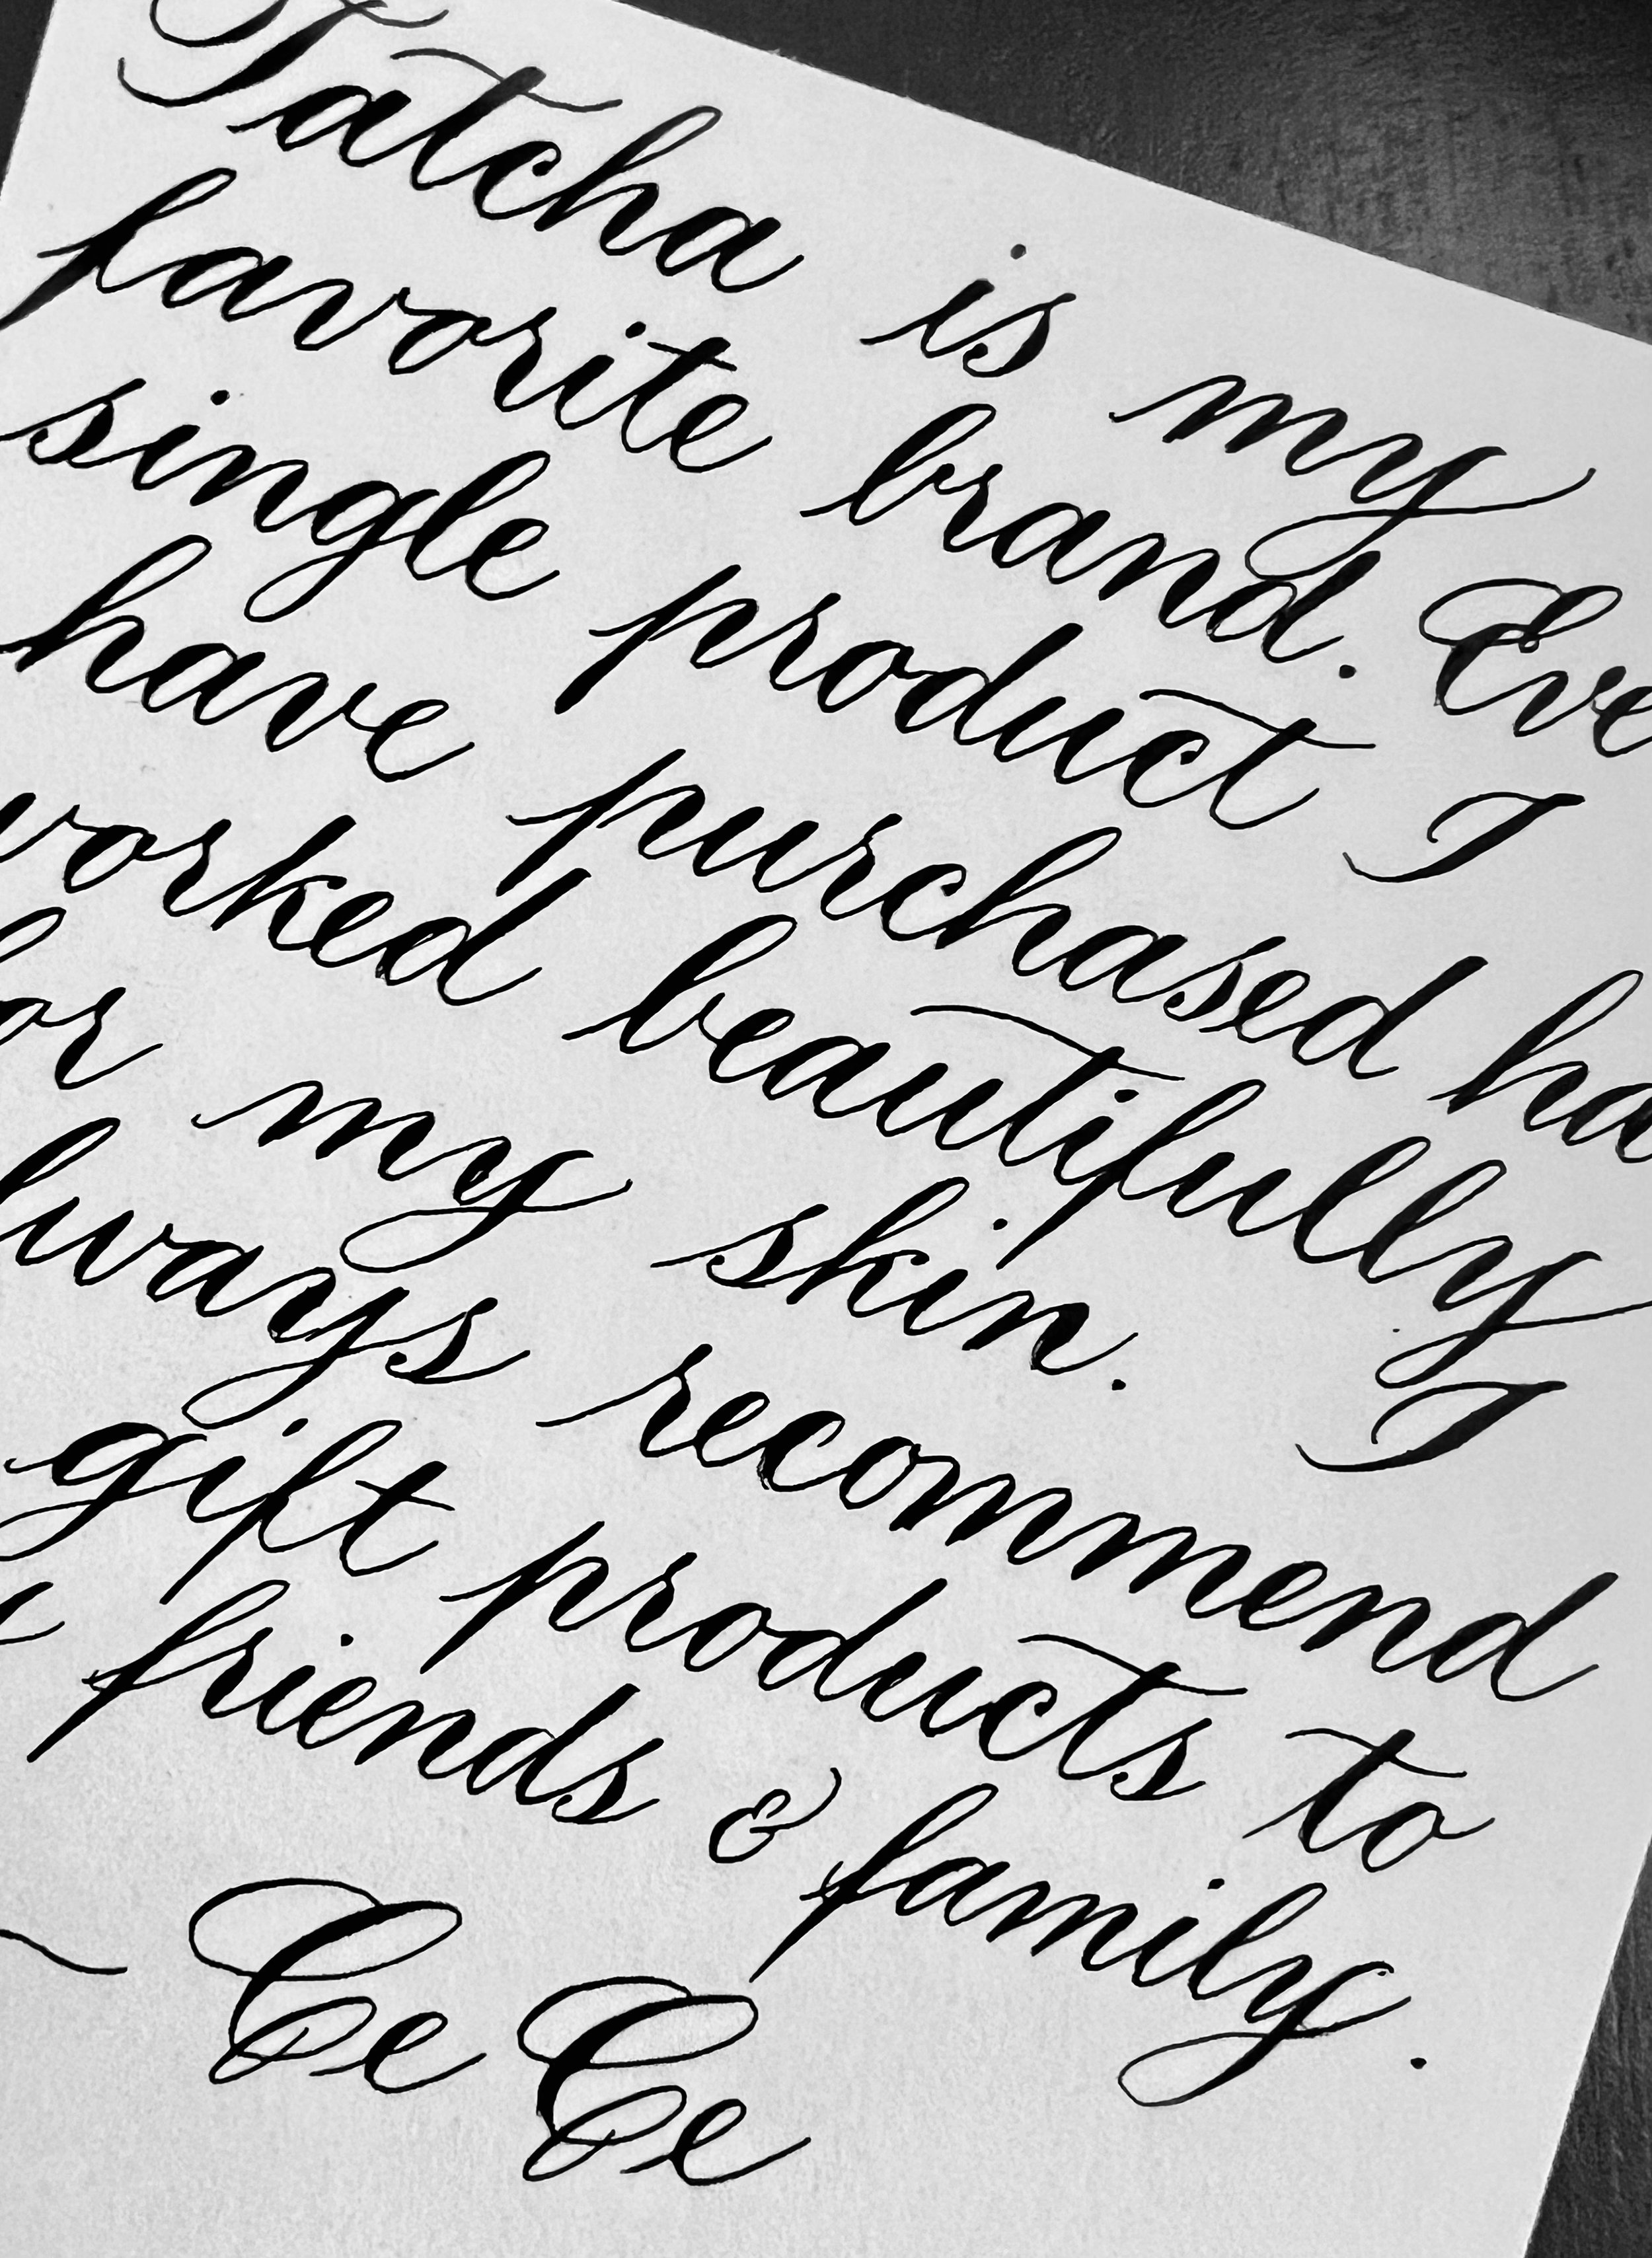 Tatcha is my
favorite brand. Eve
single product I
have purchased ha
worked beautifully
for my skin. I
lways recommend
gift products to
friends & family.
~ CeCe